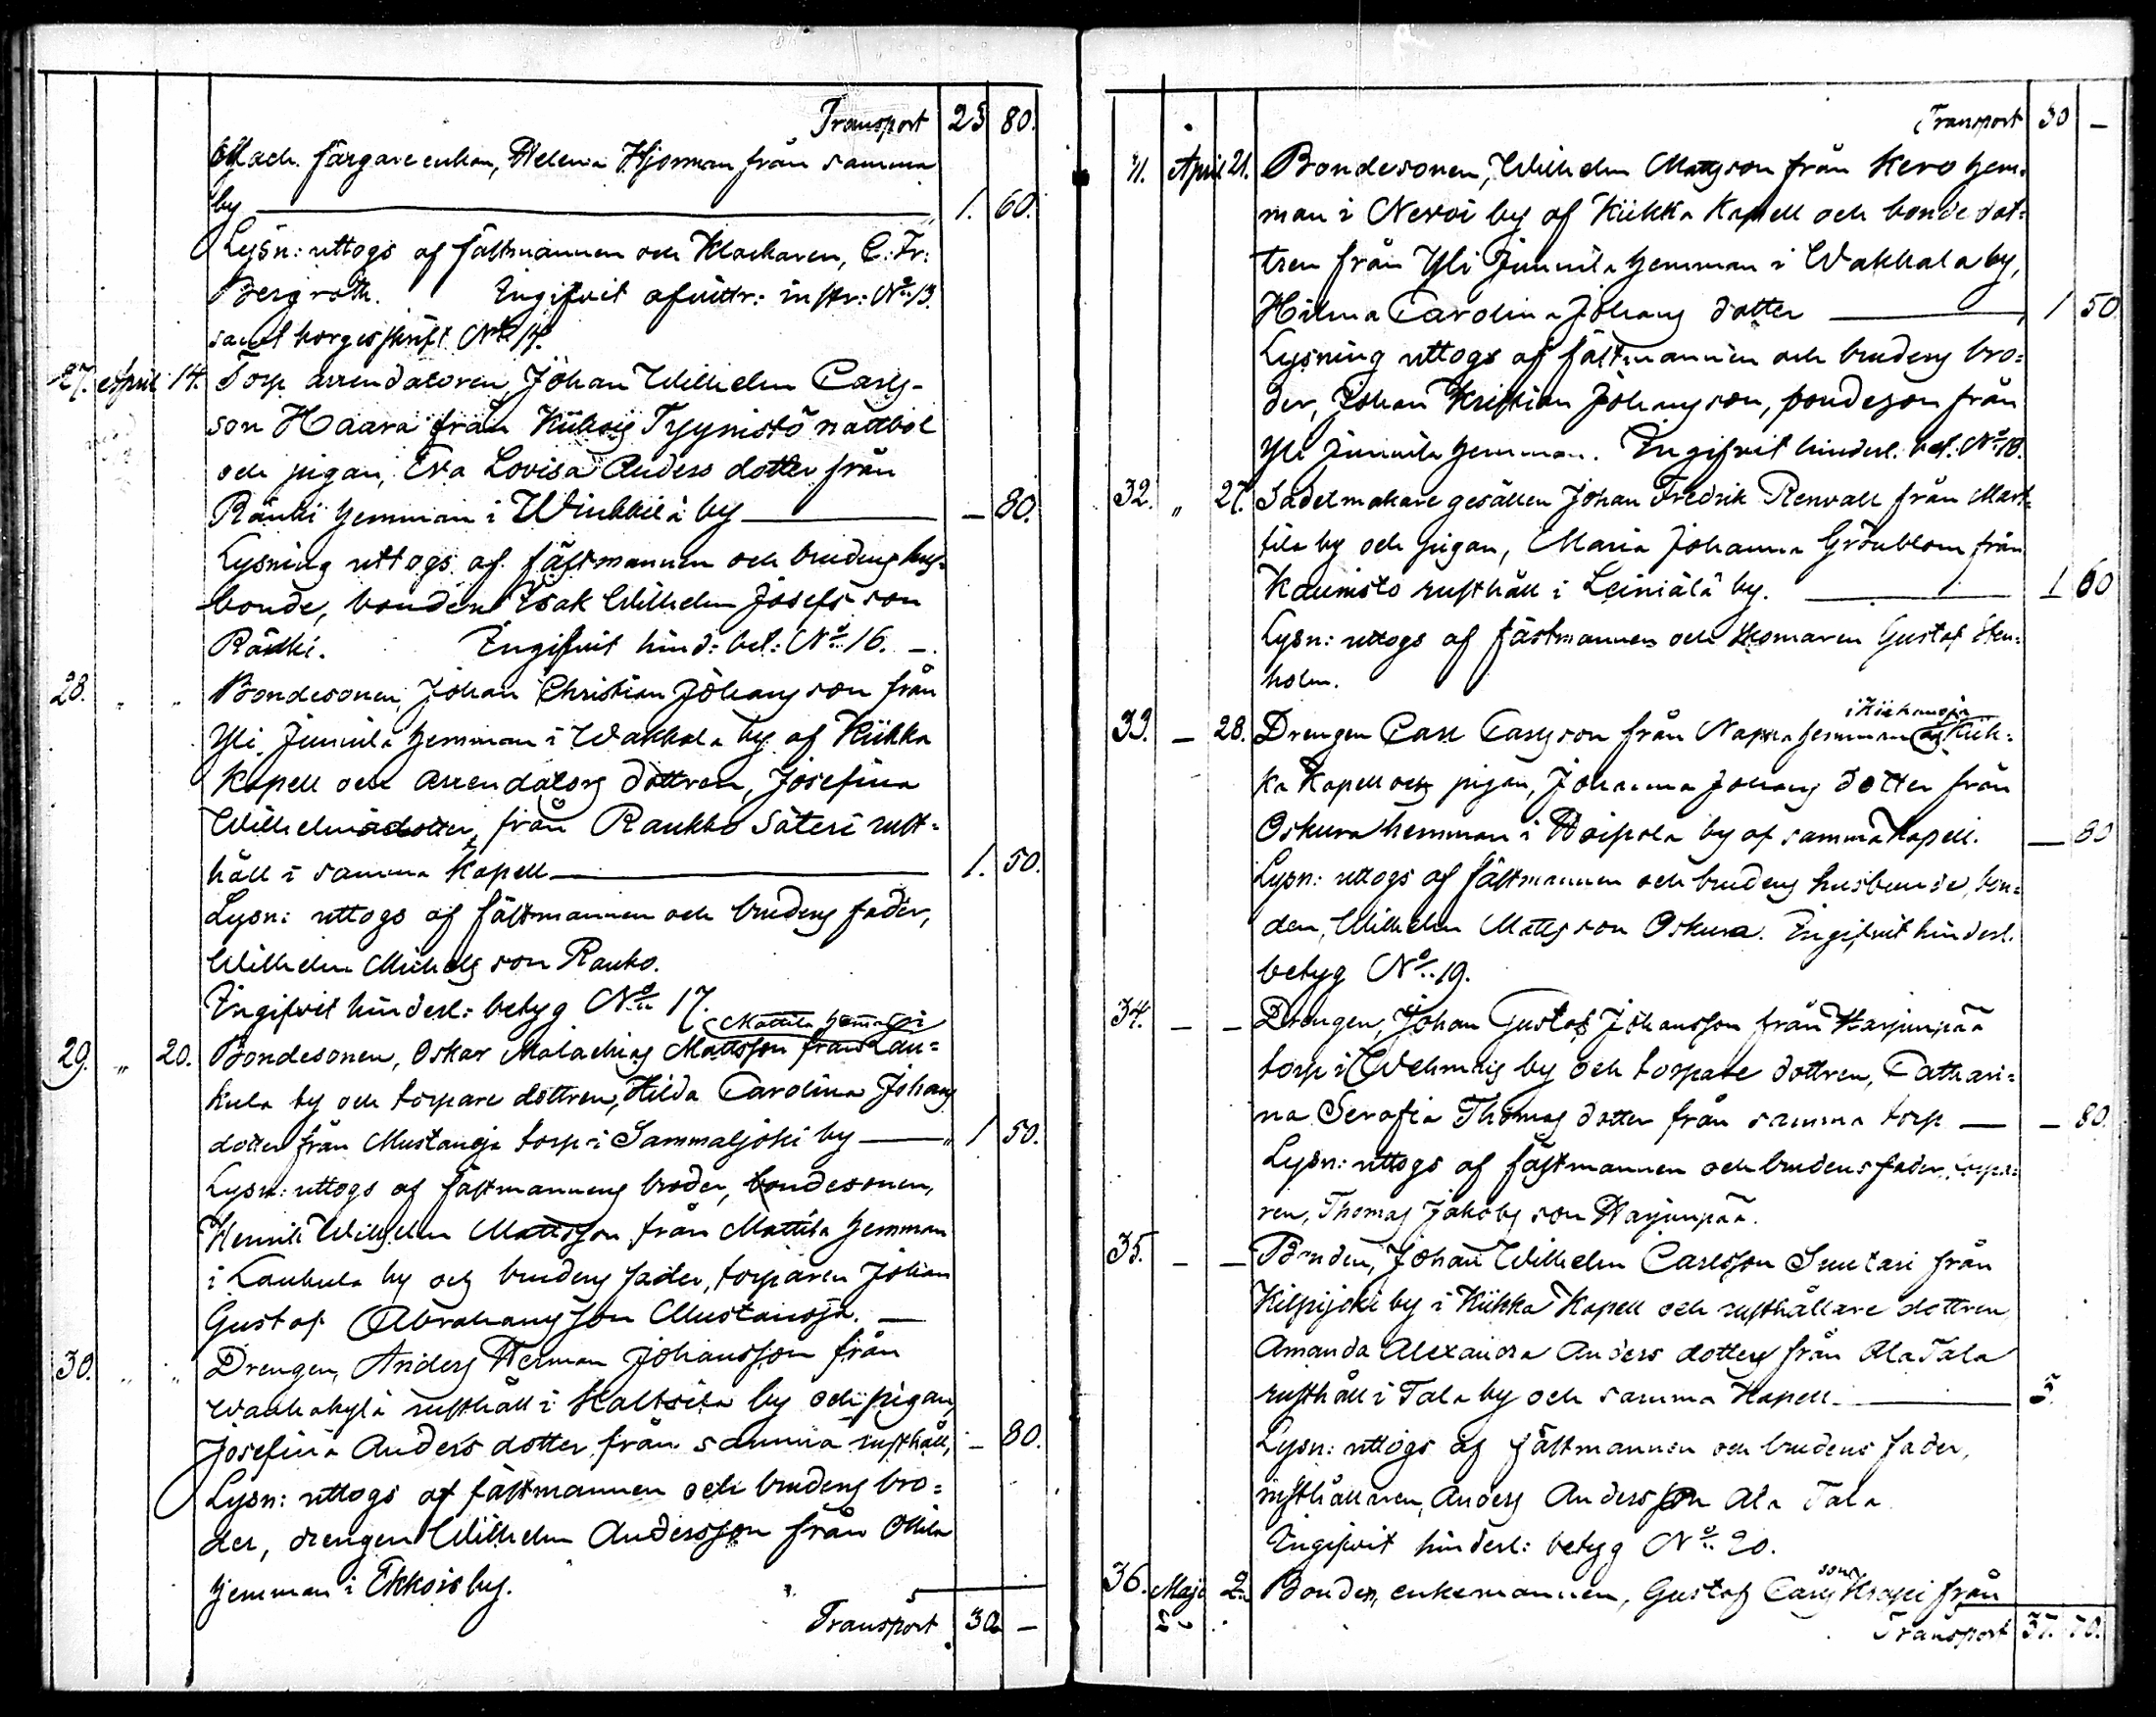 Transport 23 80.
och färgare enkan, Helena Hjorman från samma
by 1. 60.
Lysn: uttogs af fästmannen och Klockaren, C. Fr:
Bergroth. Ingifvit afvittr: instr: No 13.
samt borgesskrift No 14.
27. April 14. Torp arrendatoren, Johan Wilhelm Carls-
son Haara från Kiikois Tyynistö nattbol
och pigan, Eva Lovisa Anders dotter från
Ränki hemman i Winkkilä by — 80.
Lysning uttogs af fästmannen och brudens hus-
bonde, bonden Isak Wilhelm Josefs son
Ränki. Ingifvit hind: bet: No 16. —
28. " " Bondesonen, Johan Christian Johans son från
Yli Junnila hemman i Wakkala by af Kiikka
Kapell och arrendators dottren, Josefina
Wilhelmsdotter, från Raukko Säteri rust-
håll i samma Kapell 1. 50.
Lysn: uttogs af fästmannen och brudens fader,
Wilhelm Michels son Rauko.
Ingifvit hinderl: betyg No 17.
Mattila heman i
29. " 20. Bondesonen, Oskar Malachias Mattsson från Lau-
kula by och torpare dottren, Hilda Carolina Johans
dotter från Mustanoja torp i Sammaljoki by " 1 50.
Lysn: uttogs af fästmannens broder, bondesonen,
Henrik Wilhelm Mattsson från Mattila hemman
i Laukula by och brudens fader, torparen Johan
Gustaf Abrahamsson Mustanoja. —
30. " " Drengen, Anders Herman Johansson från
Wanhakylä rusthåll i Kaltsila by och pigan,
Josefina Anders dotter från samma rusthåll, — 80.
Lysn: uttogs af fästmannen och brudens bro-
der, drengen Wilhelm Andersson från Ollila
hemman i Ekkois by.
Transport 30 —
Transport 30 —
31. April 21. Bondesonen, Wilhelm Mattsson från Kero hem-
man i Nevoi by af Kiikka Kapell och bonde dot-
tren från Yli Junnila hemman i Wakkala by,
Hilma Carolina Johans dotter 1 50
Lysning uttogs af fästmannen och brudens bro-
der, Johan Kristian Johansson, bondeson från
Yli Junnila hemman. Ingifvit hinderl. bet. No 18.
32. " 27. Sadelmakare gesällen Johan Fredrik Renvall från Mart-
tila by och pigan, Maria Johanna Grönblom från
Kaunisto rusthåll i Leiniälä by. 1 60
Lysn: uttogs af fästmannen och Gustaf Sten-
holm.
i Kiikanoja
33. — 28. Drengen Carl Carlsson från Nappa hemman af Kiik-
ka Kapell och pigan, Johanna Johans dotter från
Oskura hemman i Hoipola by af samma Kapell. — 80
Lysn: uttogs af fästmannen och brudens husbonde, bon-
den, Wilhelm Mattsson Oskura. Ingifvit hinderl.
betyg No 19.
34. — — Drengen, Johan Gustaf Johansson från Harjunpää
torp i Wehmais by och torpare dottren, Cathari-
na Serafia Thomas dotter från samma torp — — 80.
Lysn: uttogs af fästmannen och brudens fader, torpa-
ren, Thomas Jakobs son Harjunpää.
35. — — Bonden, Johan Wilhelm Carlsson Suutari från
Kilpijoki by i Kiikka Kapell och rusthållare dottren
Amanda Alexandra Anders dotter från Ala Tala
rusthåll i Tala by och samma Kapell. 5.
Lysn: uttogs af fästmannen och brudens fader,
rusthållaren, Anders Andersson Ala Tala
Ingifvit hinderl: betyg No 20.
son
36. Maji 2. Bonden, enkemannen, Gustaf Carls Knapi från
Transport 37. 70.